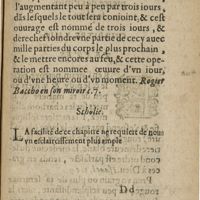 l'augmentant peu à peu par trois iours,
dãs lesquels le tout sera conioint, & cest
ouurage est nommé de trois iours, &
derechef ioindre vne partie de cecy auec
mille parties du corps le plus prochain,
& le mettre encores au feu, & cette ope-
ration est nommee œuure d'vn iour,
ou d'vne heure ou d'vn moment. Rogier
Bacchō en son miroir c. 7.
Scholie.
LA facilité de ce chapitre ne requiert de nous
vn esclaircissement plus ample
Dd